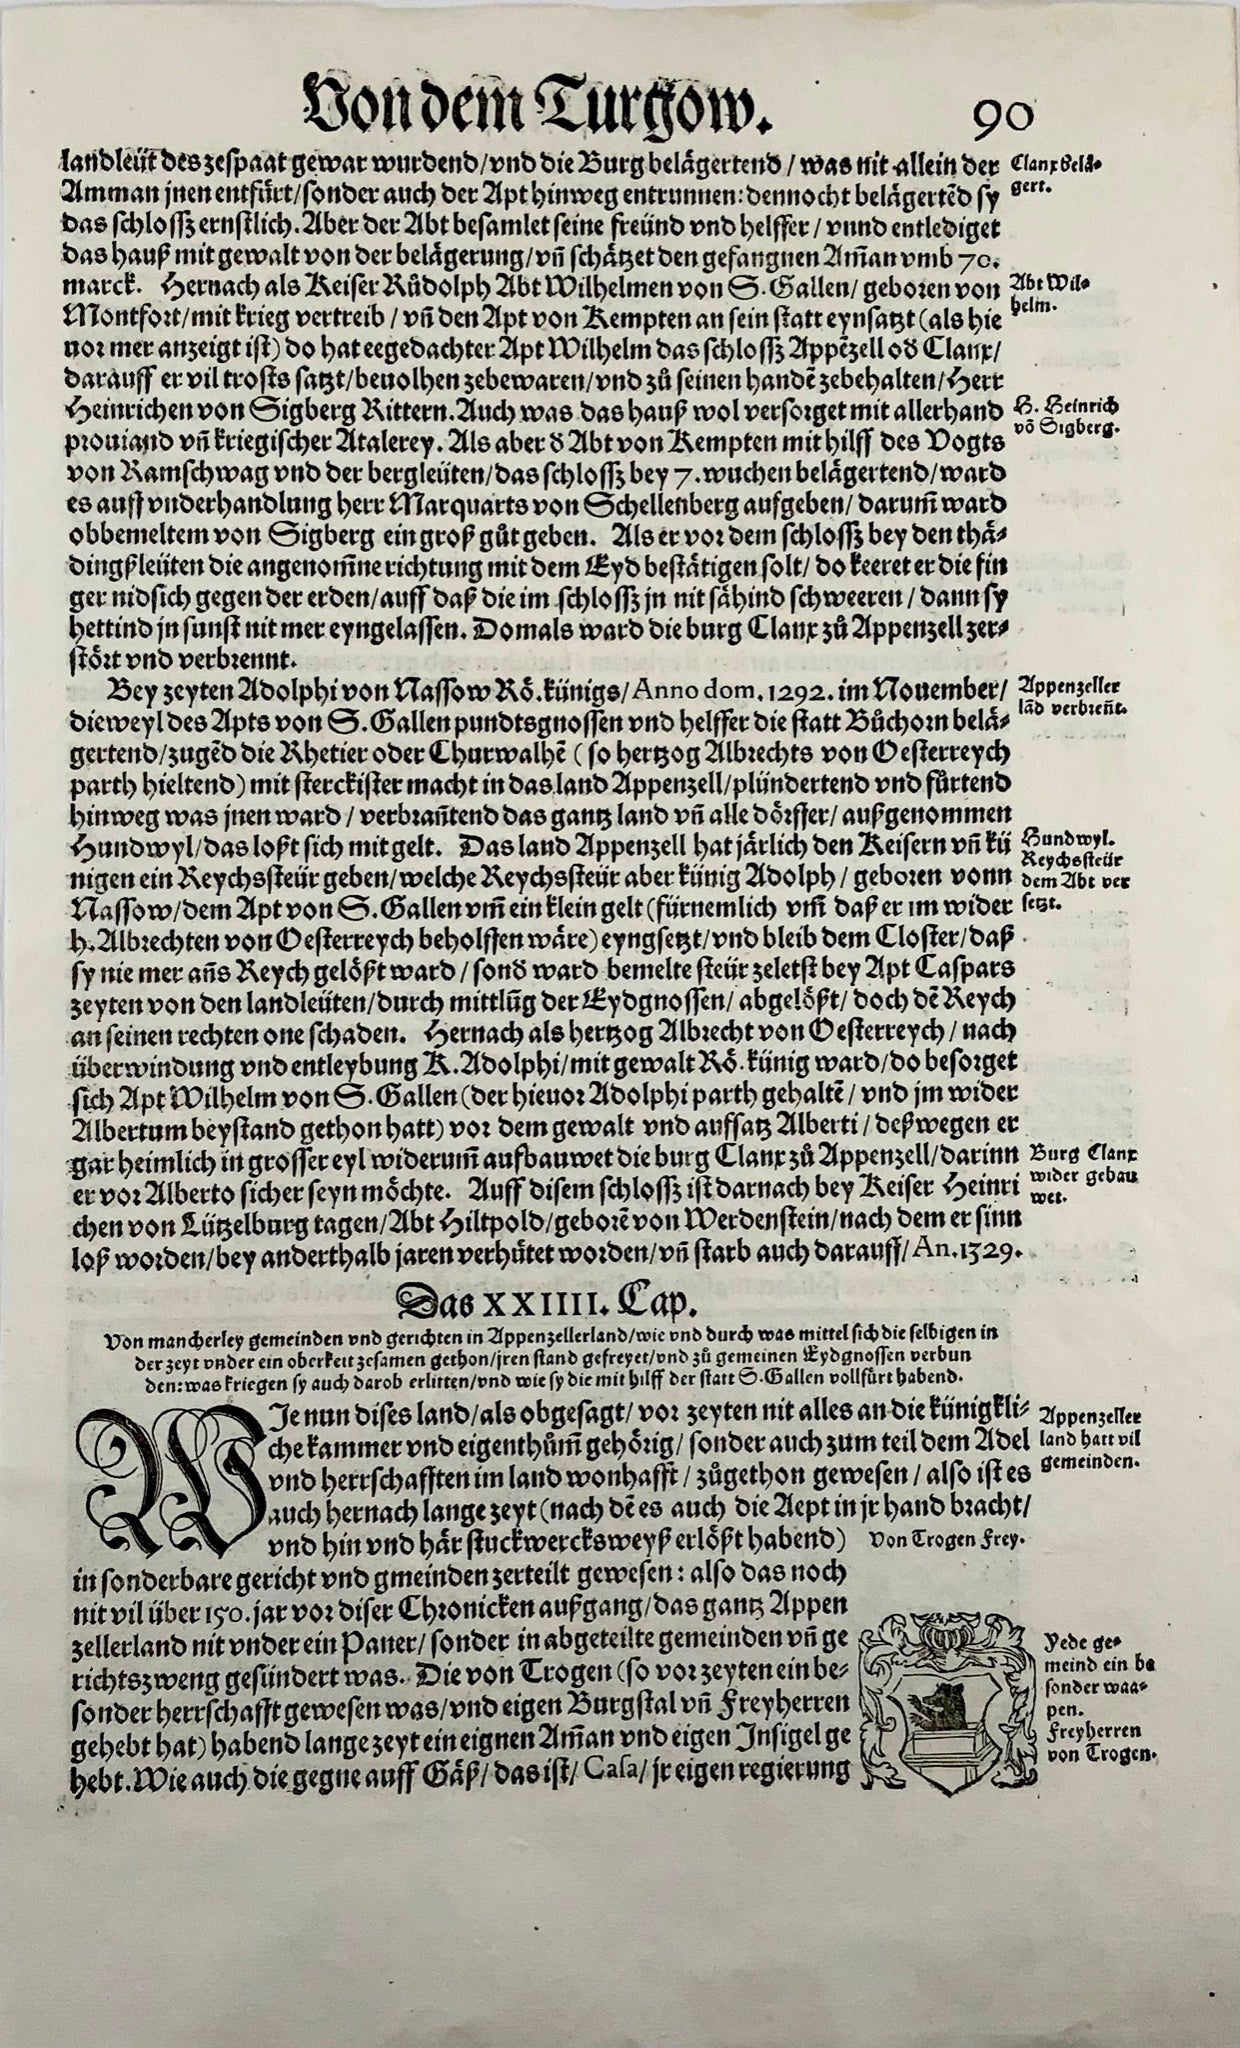 Von dem Turgow.
90
landleüt des zespaat gewar wurdend/vnd die Burg belägertend/was nit allein der
Clanx belä-
gert.
Amman jnen entfürt/sonder auch der Apt hinweg entrunnen: dennocht belägertēd sy
das schlossz ernstlich. Aber der Abt besamlet seine freünd vnd helffer/vnnd entlediget
das hauß mit gewalt von der belägerung/vn̄ schätzet den gefangnen Am̄an vmb 70.
marck. Hernach als Keiser Růdolph Abt Wilhelmen von S. Gallen/geboren von
Abt Wil-
helm.
Montfort/mit krieg vertreib/vn̄ den Apt von Kempten an sein statt eynsatzt (als hie
uor mer anzeigt ist) do hat eegedachter Apt Wilhelm das schlossz Appēzell oď Clanx/
darauff er vil trosts satzt/beuolhen zebewaren/vnd zů seinen handē zebehalten/Herr
Heinrichen von Sigberg Rittern. Auch was das hauß wol versorget mit allerhand
H. Heinrich
vō Sigberg.
prouiand vn̄ kriegischer Atalerey. Als aber ď Abt von Kempten mit hilff des Vogts
von Ramschwag vnd der bergleüten/das schlossz bey 7. wuchen belägertend/ward
es auff vnderhandlung herr Marquarts von Schellenberg aufgeben/darum̄ ward
obbemeltem von Sigberg ein groß gůt geben. Als er vor dem schlossz bey den thä-
dingßleüten die angenom̄ne richtung mit dem Eyd bestätigen solt/do keeret er die fin
ger nidsich gegen der erden/auff daß die im schlossz jn nit sähind schweeren/dann sy
hettind jn sunst nit mer eyngelassen. Domals ward die burg Clanx zů Appenzell zer-
stört vnd verbrennt.
Bey zeyten Adolphi von Nassow Rö. künigs/Anno dom. 1292. im Nouember/
Appenzeller
lād verbren̄t.
dieweyl des Apts von S. Gallen pundtsgnossen vnd helffer die statt Bůchorn belä-
gertend/zugēd die Rhetier oder Churwalhē (so hertzog Albrechts von Oesterreych
parth hieltend) mit sterckister macht in das land Appenzell/plündertend vnd fůrtend
hinweg was jnen ward/verbran̄tend das gantz land vn̄ alle dörffer/außgenommen
Hundwyl/das loßt sich mit gelt. Das land Appenzell hat järlich den Keisern vn̄ kü
Hundwyl.
Reychssteür
dem Abt ver
setzt.
nigen ein Reychssteür geben/welche Reychssteür aber künig Adolph/geboren vonn
Nassow/dem Apt von S. Gallen vm̄ ein klein gelt (fürnemlich vm̄ daß er im wider
h. Albrechten von Oesterreych beholffen wäre) eyngsetzt/vnd bleib dem Closter/daß
sy nie mer an̄s Reych gelößt ward/sonď ward bemelte steür zeletst bey Apt Caspars
zeyten von den landleüten/durch mittlūg der Eydgnossen/abgelößt/doch dē Reych
an seinen rechten one schaden. Hernach als hertzog Albrecht von Oesterreych/nach
überwindung vnd entleybung K. Adolphi/mit gewalt Rö. künig ward/do besorget
sich Apt Wilhelm von S. Gallen (der hieuor Adolphi parth gehaltē/vnd jm wider
Albertum beystand gethon hatt) vor dem gewalt vnd aufsatz Alberti/deßwegen er
gar heimlich in grosser eyl widerum̄ aufbauwet die burg Clanx zů Appenzell/darinn
Burg Clanx
wider gebau
wet.
er vor Alberto sicher seyn möchte. Auff disem schlossz ist darnach bey Keiser Heinri
chen von Lützelburg tagen/Abt Hiltpold/geborē von Werdenstein/nach dem er sinn
loß worden/bey anderthalb jaren verhütet worden/vn̄ starb auch darauff/An. 1329.
Das XXIIII. Cap.
Von mancherley gemeinden vnd gerichten in Appenzellerland/wie vnd durch was mittel sich die selbigen in
der zeyt vnder ein oberkeit zesamen gethon/jren stand gefreyet/vnd zů gemeinen Eydgnossen verbun
den: was kriegen sy auch darob erlitten/vnd wie sy die mit hilff der statt S. Gallen vollfürt habend.
WJe nun dises land/als obgesagt/vor zeyten nit alles an die künigkli-
Appenzeller
land hatt vil
gemeinden.
che kammer vnd eigenthům̄ gehörig/sonder auch zum teil dem Adel
vnd herrschafften im land wonhafft/zůgethon gewesen/also ist es
auch hernach lange zeyt (nach dē es auch die Aept in jr hand bracht/
vnd hin vnd här stuckwercksweyß erlößt habend)
Von Trogen Frey.
in sonderbare gericht vnd gmeinden zerteilt gewesen: also das noch
nit vil über 150. jar vor diser Chronicken außgang/das gantz Appen
zellerland nit vnder ein Paner/sonder in abgeteilte gemeinden vn̄ ge
Yede ge-
meind ein be
sonder waa-
pen.
Freyherren
von Trogen.
richtszweng gesündert was. Die von Trogen (so vor zeyten ein be-
sonder herrschafft gewesen was/vnd eigen Burgstal vn̄ Freyherren
gehebt hat) habend lange zeyt ein eignen Am̄an vnd eigen Insigel ge
hebt. Wie auch die gegne auff Gäß/das ist/Casa/jr eigen regierung